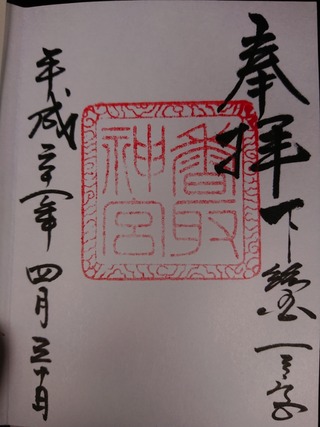 奉拝
下総国一之宮
香取
神宮
平成三十一年四月三十日